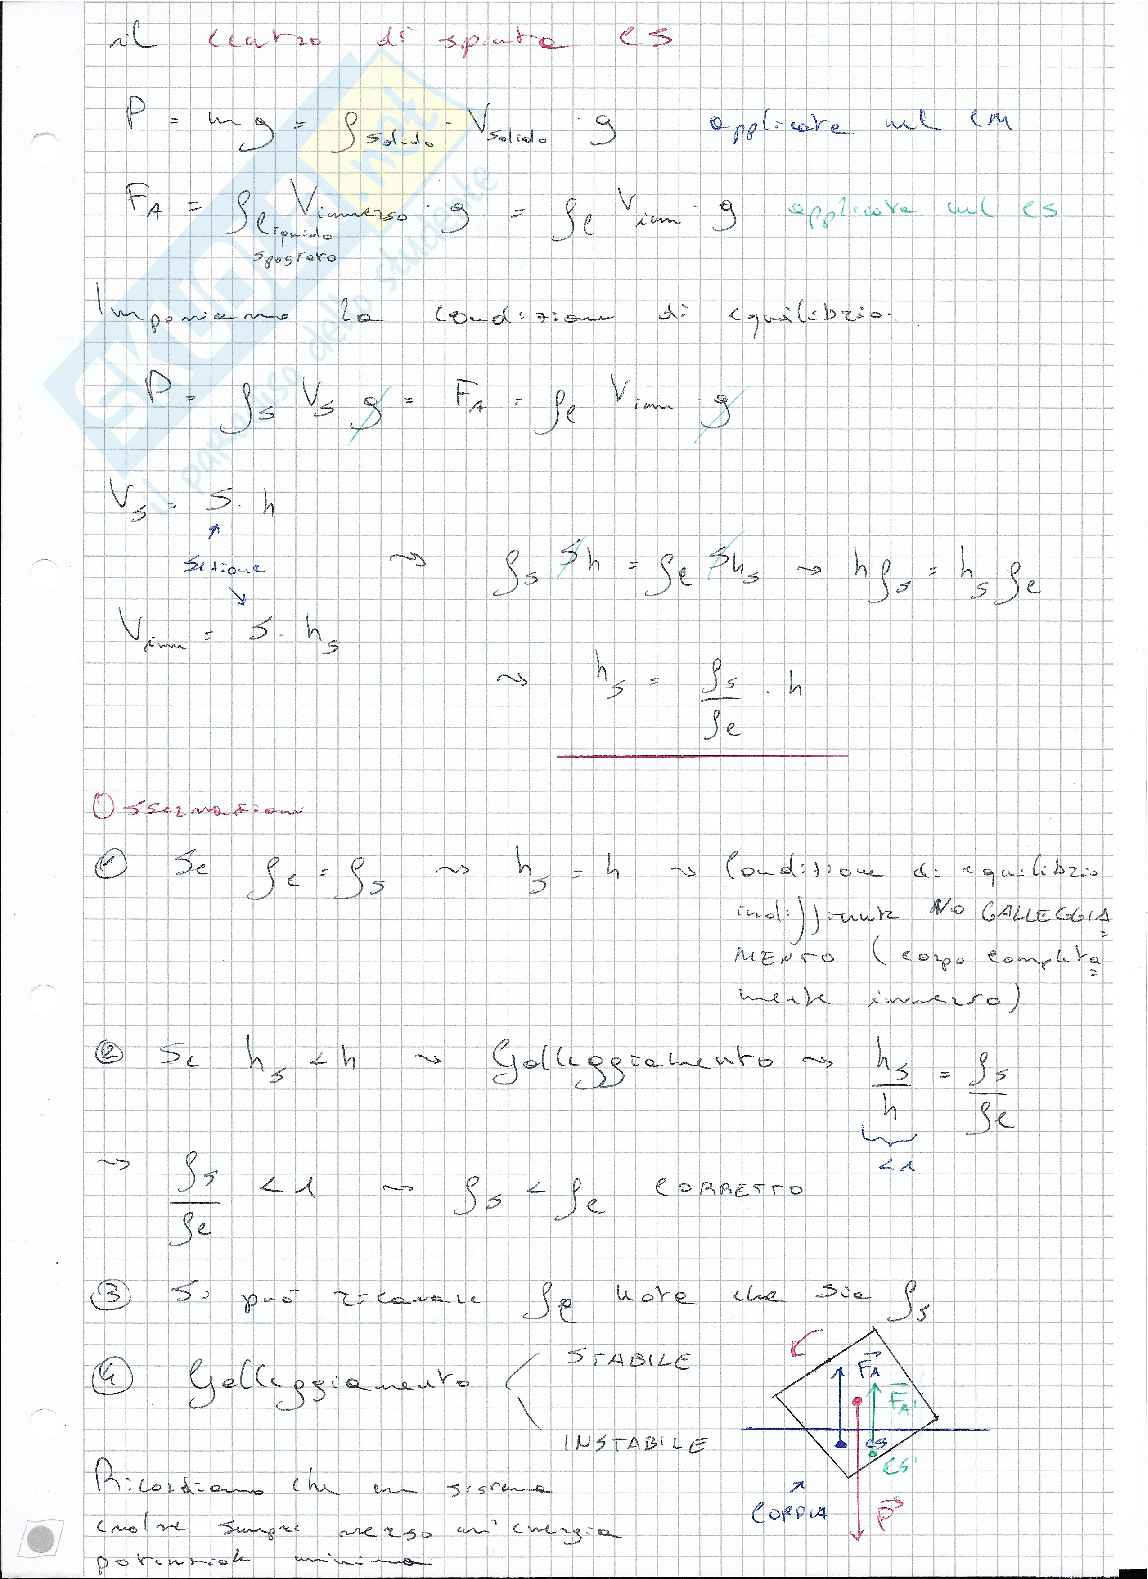 il centro di spinta CS
P = m g = ρsolido · Vsolido · g applicata nel CM
FA = ρliquido spostato Vimmerso · g = ρe Vimm · g applicata nel CS
Imponiamo la condizione di equilibrio.
P = ρs Vs g = FA = ρe Vimm g
Vs = S · h
sezione
⇝ ρs Sh = ρe Shs ⇝ hρs = hs ρe
Vimm = S · hs
⇝ hs = ρs/ρe · h
Osservazioni
① Se ρe = ρs ⇝ hs = h ⇝ Condizione di equilibrio
indifferente NO GALLEGGIA
MENTO (corpo completa
mente immerso)
② Se hs < h ⇝ Galleggiamento ⇝ hs/h = ρs/ρe
< 1
⇝ ρs/ρe < 1 ⇝ ρs < ρe CORRETTO
③ Si può ricavare ρe nota che sia ρs
④ Galleggiamento
STABILE
INSTABILE
FA
FA'
CS
CS'
COPPIA
P
Ricordiamo che un sistema
evolve sempre verso un'energia
potenziale minima
SKUOLA.net
il paradiso dello studente